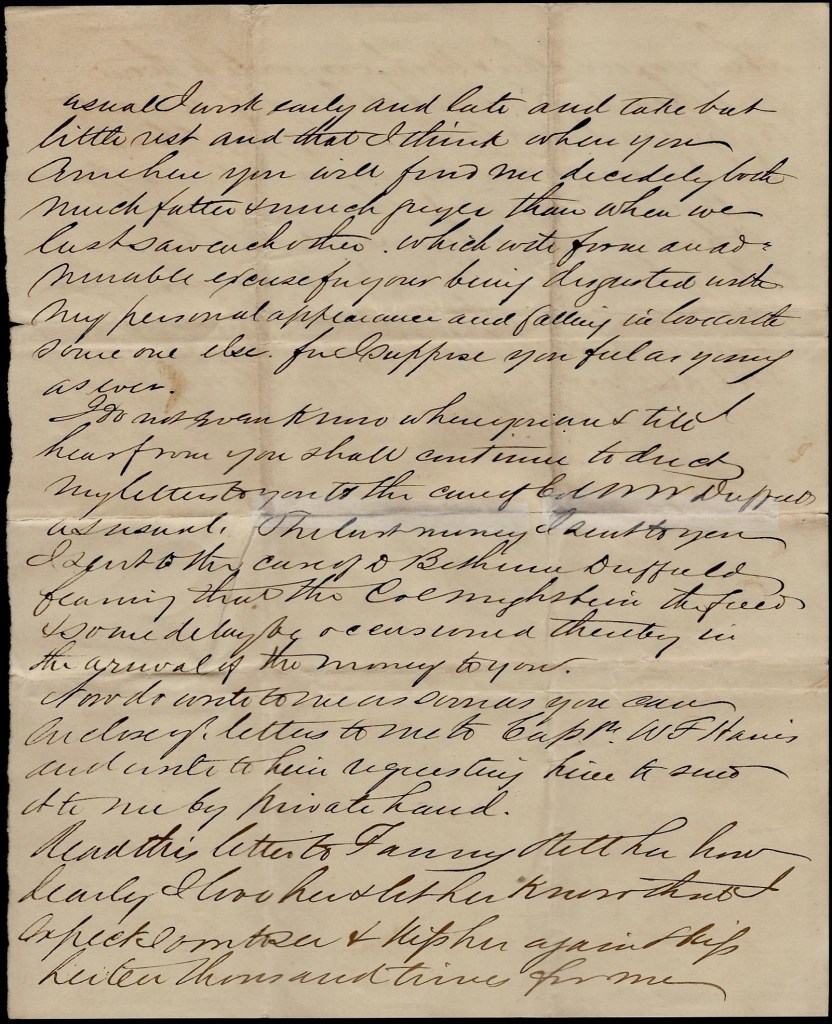 usual I work early and late and take but
little rest and that I think when you
come here you will find me decidedly both
much fatter & much greyer than when we
last saw each other. which will form an ad=
mirable excuse for your being disgusted with
my personal appearance and falling in love with
some one else. for I suppose you feel as young
as ever.
I do not even know where you are & till I
hear from you shall continue to direct
my letters to you to the care of Col W W Duffield
as usual. The last money I sent to you
I sent to the care of D Bethune Duffield
fearing that the Col might be in the field
& some delay be occasioned thereby in
the arrival of the money to you.
Now do write to me as soon as you can
enclose letters to me to Capt W F Harris
and write to him requesting him to send
it to me by private hand.
Read this letter to Fanny & tell her how
dearly I love her & let her know that I
expect soon to see & kiss her again & kiss
her ten thousand times for me